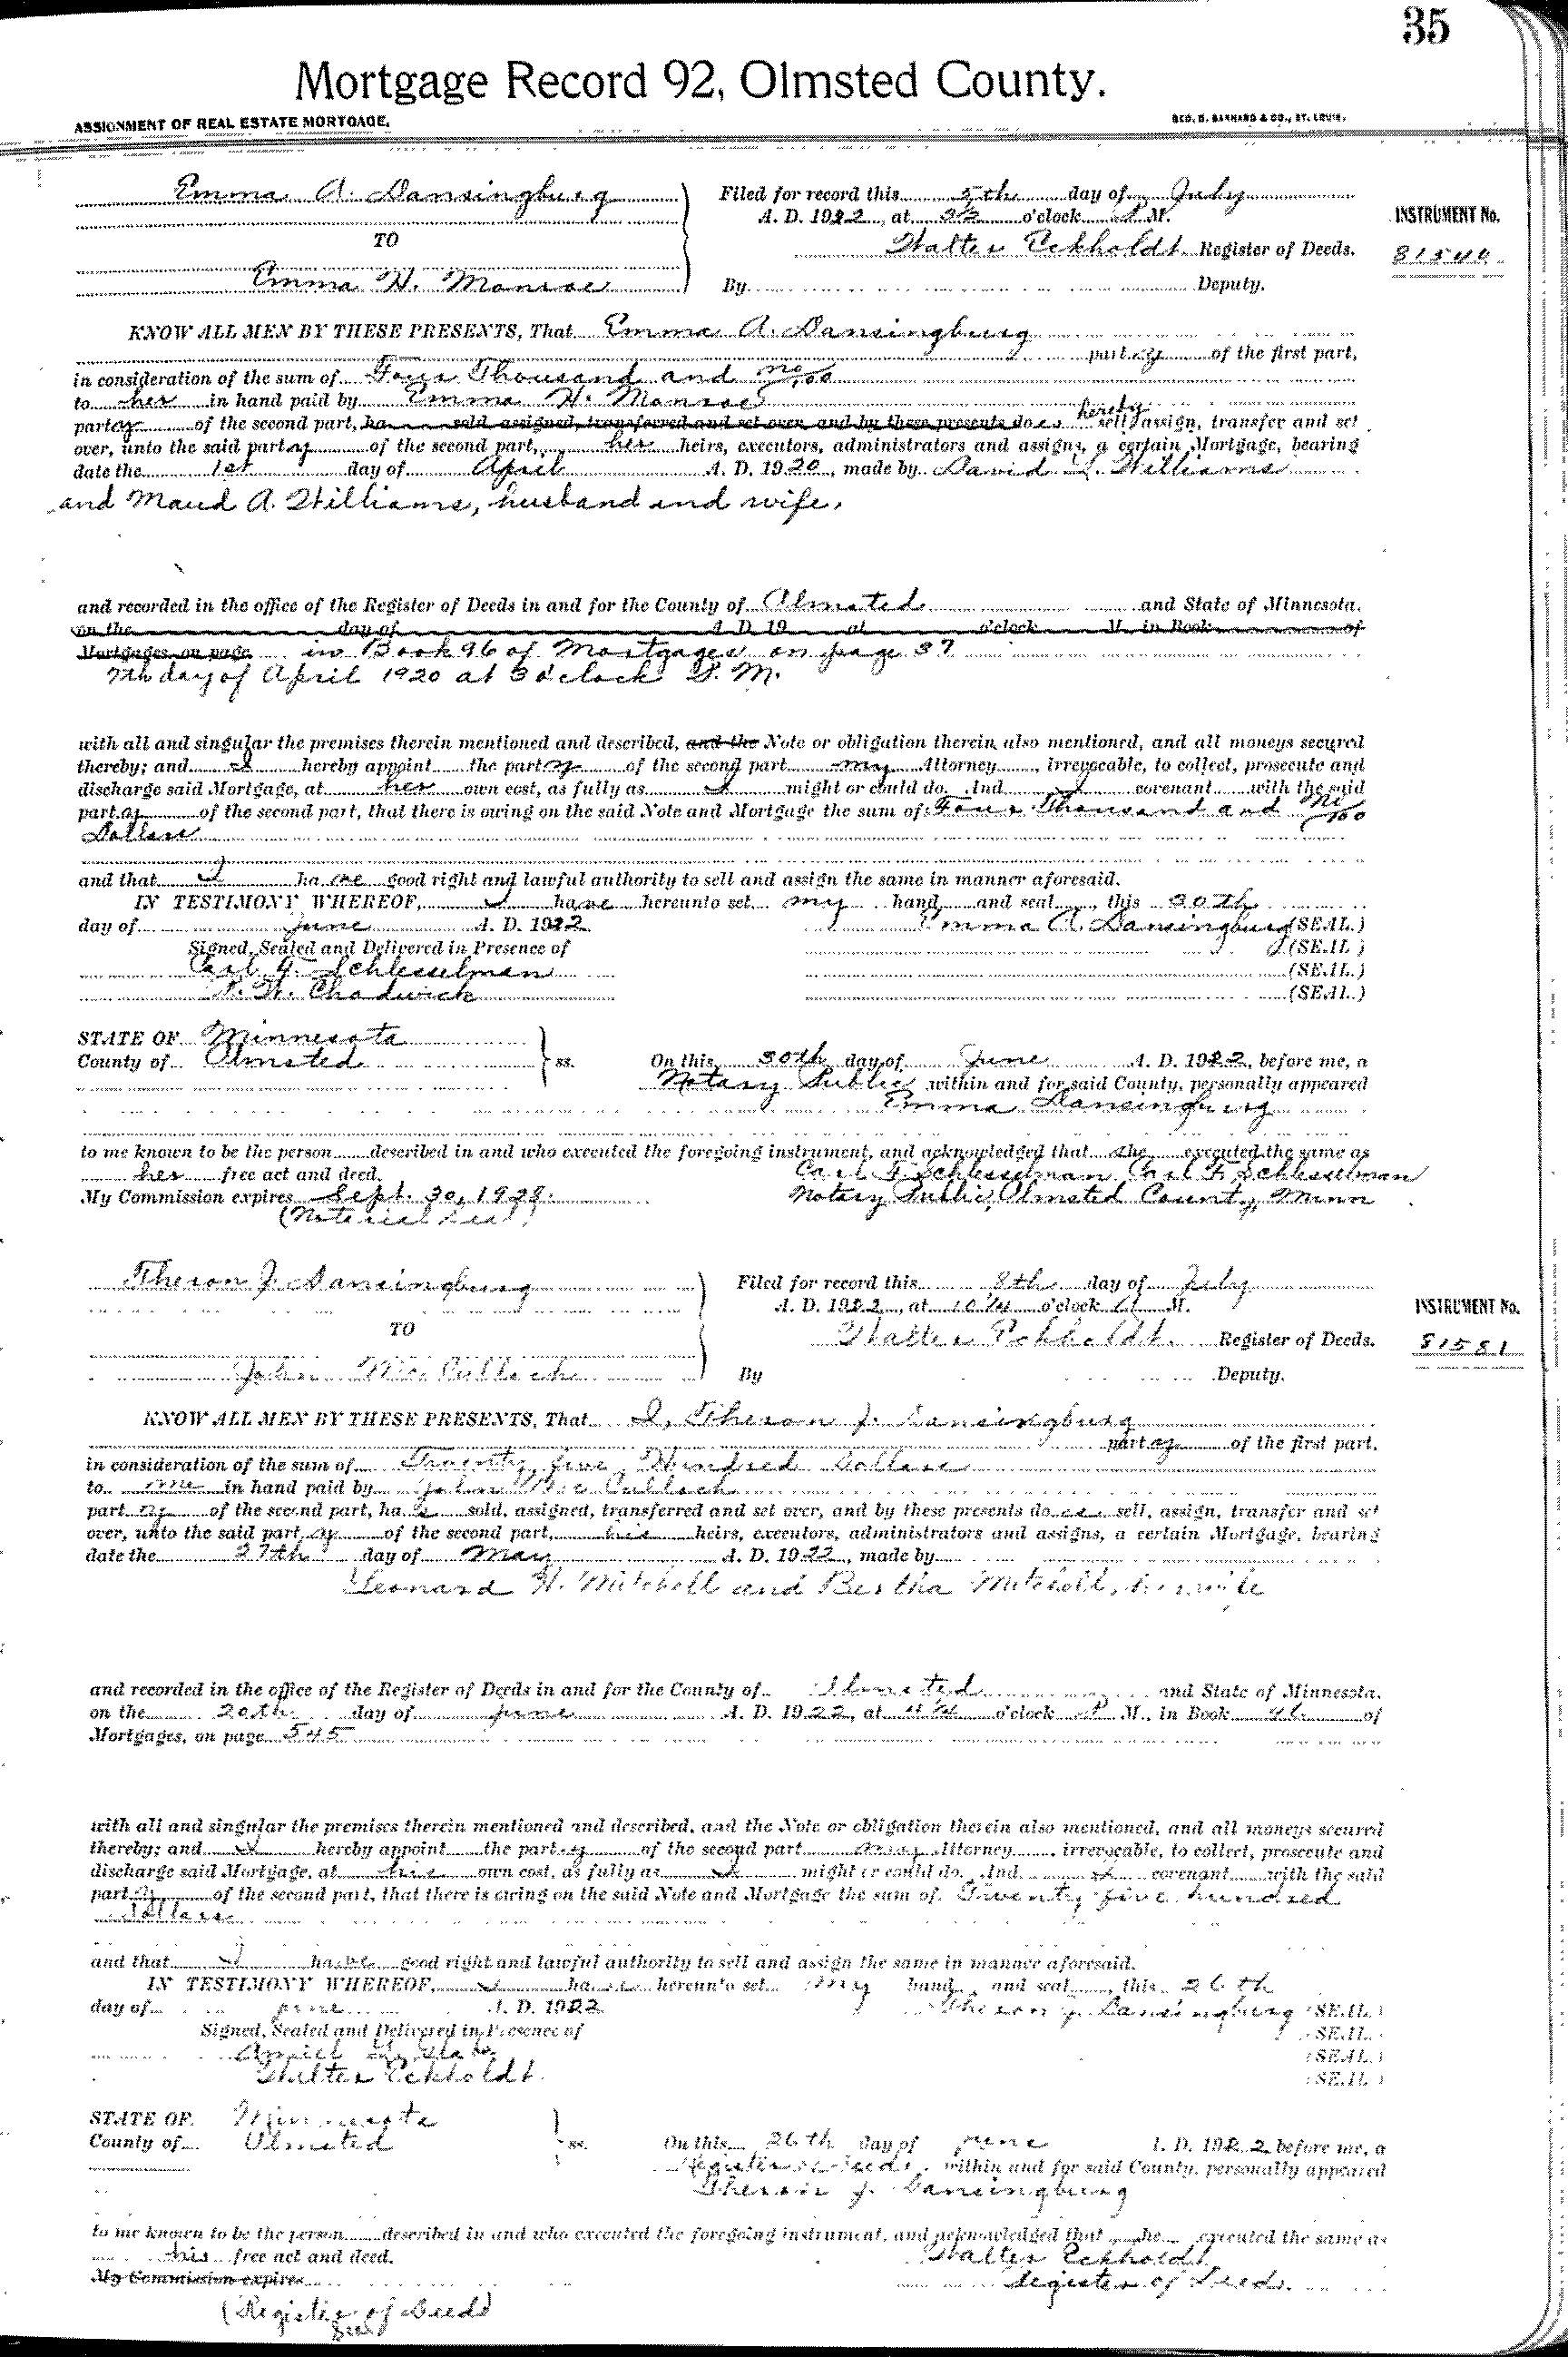 35
Mortgage Record 92, Olmsted County.
ASSIGNMENT OF REAL ESTATE MORTGAGE. GEO. D. BARNARD & CO., ST. LOUIS.
Emma A. Dansingburg
Filed for record this 5th day of July
A. D. 1922, at o'clock P M.
TO
Walter Eckholdt Register of Deeds.
INSTRUMENT No.
Emma H. Monroe
By Deputy.
KNOW ALL MEN BY THESE PRESENTS, That Emma A. Dansingburg
party of the first part,
in consideration of the sum of Four Thousand and no/100
to her in hand paid by Emma H. Monroe
party of the second part, ha sold, assigned, transferred and set over, and by these presents does hereby sell, assign, transfer and set
over, unto the said party of the second part, her heirs, executors, administrators and assigns, a certain Mortgage, bearing
date the 1st day of April A. D. 1920, made by David L. Williams
and Maud A. Williams, husband and wife,
and recorded in the office of the Register of Deeds in and for the County of Olmsted and State of Minnesota,
on the day of A. D. 19 at o'clock M. in Book of
Mortgages, on page in Book 96 of Mortgages on page 37
7th day of April 1920 at 3 o'clock P. M.
with all and singular the premises therein mentioned and described, and the Note or obligation therein also mentioned, and all moneys secured
thereby; and I hereby appoint the party of the second part my Attorney, irrevocable, to collect, prosecute and
discharge said Mortgage, at her own cost, as fully as I might or could do. And I covenant with the said
party of the second part, that there is owing on the said Note and Mortgage the sum of Four Thousand and No/100
Dollars
and that I have good right and lawful authority to sell and assign the same in manner aforesaid.
IN TESTIMONY WHEREOF, I have hereunto set my hand and seal, this 30th
day of June A. D. 1922 Emma A. Dansingburg (SEAL)
Signed, Sealed and Delivered in Presence of (SEAL)
Carl F. Schlesselman (SEAL)
Chadwick (SEAL)
STATE OF Minnesota
County of Olmsted ss. On this 30th day of June A. D. 1922, before me, a
Notary Public within and for said County, personally appeared
Emma Dansingburg
to me known to be the person described in and who executed the foregoing instrument, and acknowledged that she executed the same as
her free act and deed. Carl F. Schlesselman Carl F. Schlesselman
My Commission expires Sept. 30, 1928. Notary Public, Olmsted County, Minn
(Noterial Seal)
Theron J. Dansingburg
Filed for record this 8th day of July
A. D. 1922, at 10 1/4 o'clock A M.
INSTRUMENT No.
TO
Walter Eckholdt. Register of Deeds.
81581
John Mc Culloch
By Deputy.
KNOW ALL MEN BY THESE PRESENTS, That I, Theron J. Dansingburg
party of the first part,
in consideration of the sum of Twenty five Hundred Dollars
to me in hand paid by John Mc Culloch
party of the second part, has sold, assigned, transferred and set over, and by these presents does sell, assign, transfer and set
over, unto the said party of the second part, his heirs, executors, administrators and assigns, a certain Mortgage, bearing
date the 27th day of May A. D. 1922, made by
Leonard H. Mitchell and Bertha Mitchell, his wife
and recorded in the office of the Register of Deeds in and for the County of Olmsted and State of Minnesota,
on the 20th day of June A. D. 1922, at o'clock P M., in Book of
Mortgages, on page 545
with all and singular the premises therein mentioned and described, and the Note or obligation therein also mentioned, and all moneys secured
thereby; and I hereby appoint the party of the second part my Attorney, irrevocable, to collect, prosecute and
discharge said Mortgage, at his own cost, as fully as I might or could do. And I covenant with the said
party of the second part, that there is owing on the said Note and Mortgage the sum of Twenty five hundred
Dollars
and that I have good right and lawful authority to sell and assign the same in manner aforesaid.
IN TESTIMONY WHEREOF, I have hereunto set my hand and seal, this 26th
day of June A. D. 1922 Theron J. Dansingburg (SEAL)
Signed, Sealed and Delivered in Presence of (SEAL)
(SEAL)
Walter Eckholdt. (SEAL)
STATE OF Minnesota
County of Olmsted ss. On this 26th day of June A. D. 1922 before me, a
Register of Deeds within and for said County, personally appeared
Theron J. Dansingburg
to me known to be the person described in and who executed the foregoing instrument, and acknowledged that he executed the same as
his free act and deed. Walter Eckholdt
My Commission expires Register of Deeds.
(Register of Deeds
Seal)